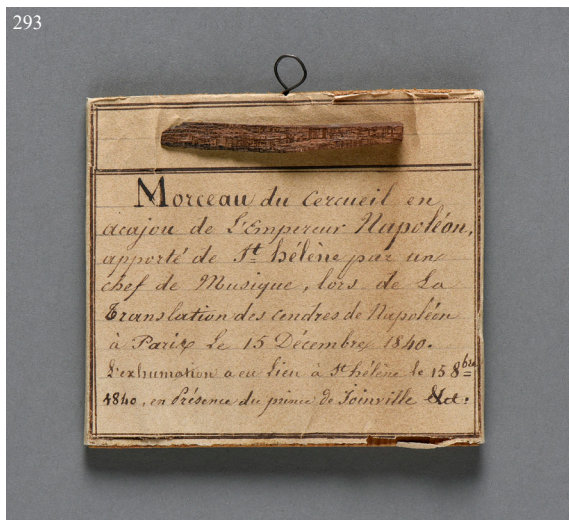 293
Morceau du Cercueil en
acajou de L'Empereur Napoléon,
apporté de St hélène par un
chef de Musique, lors de La
Translation des cendres de Napoléon
à Paris Le 15 Décembre 1840.
L'exhumation a eu Lieu à St hélène le 15 8bre
1840, en Présence du prince de Joinville &ct.